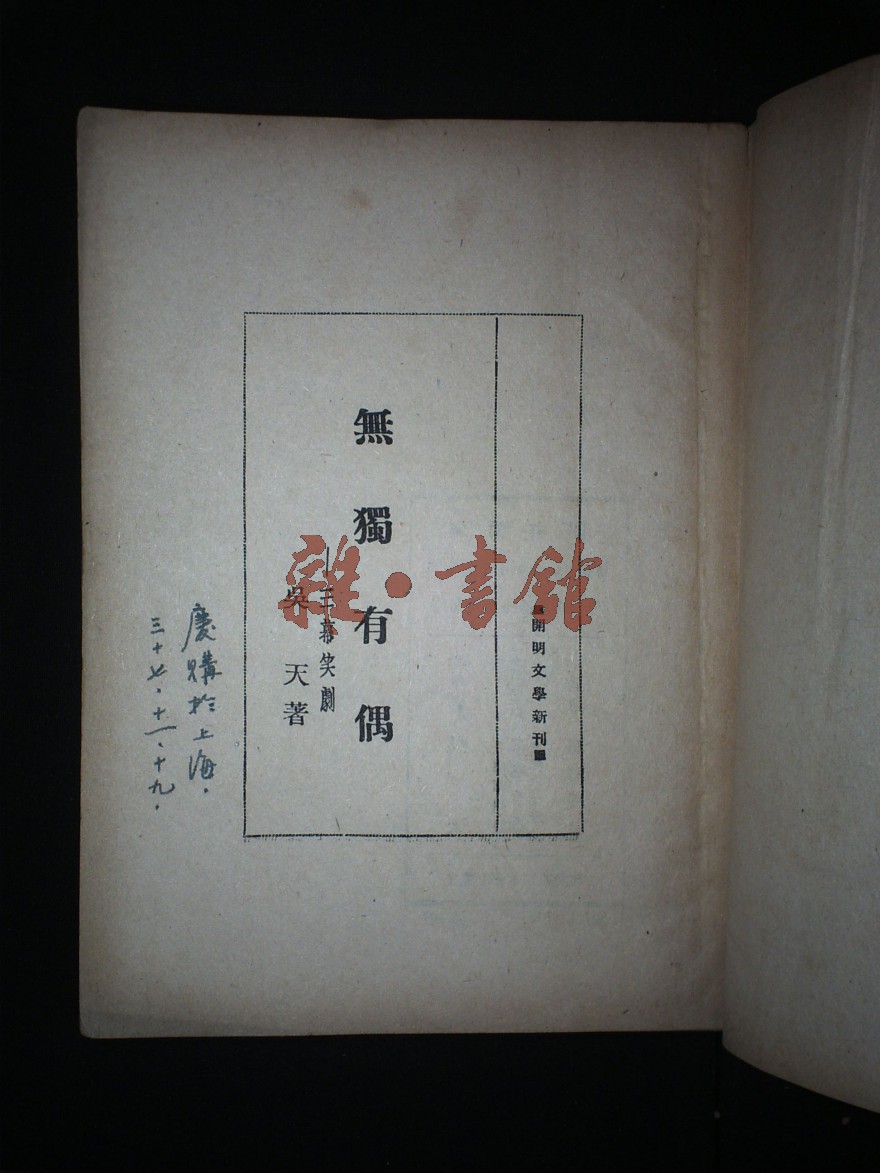 ■開明文學新刊■
無獨有偶
—三幕笑劇
吳天著
慶購於上海.
三十七.十一.十九.
雜·書館